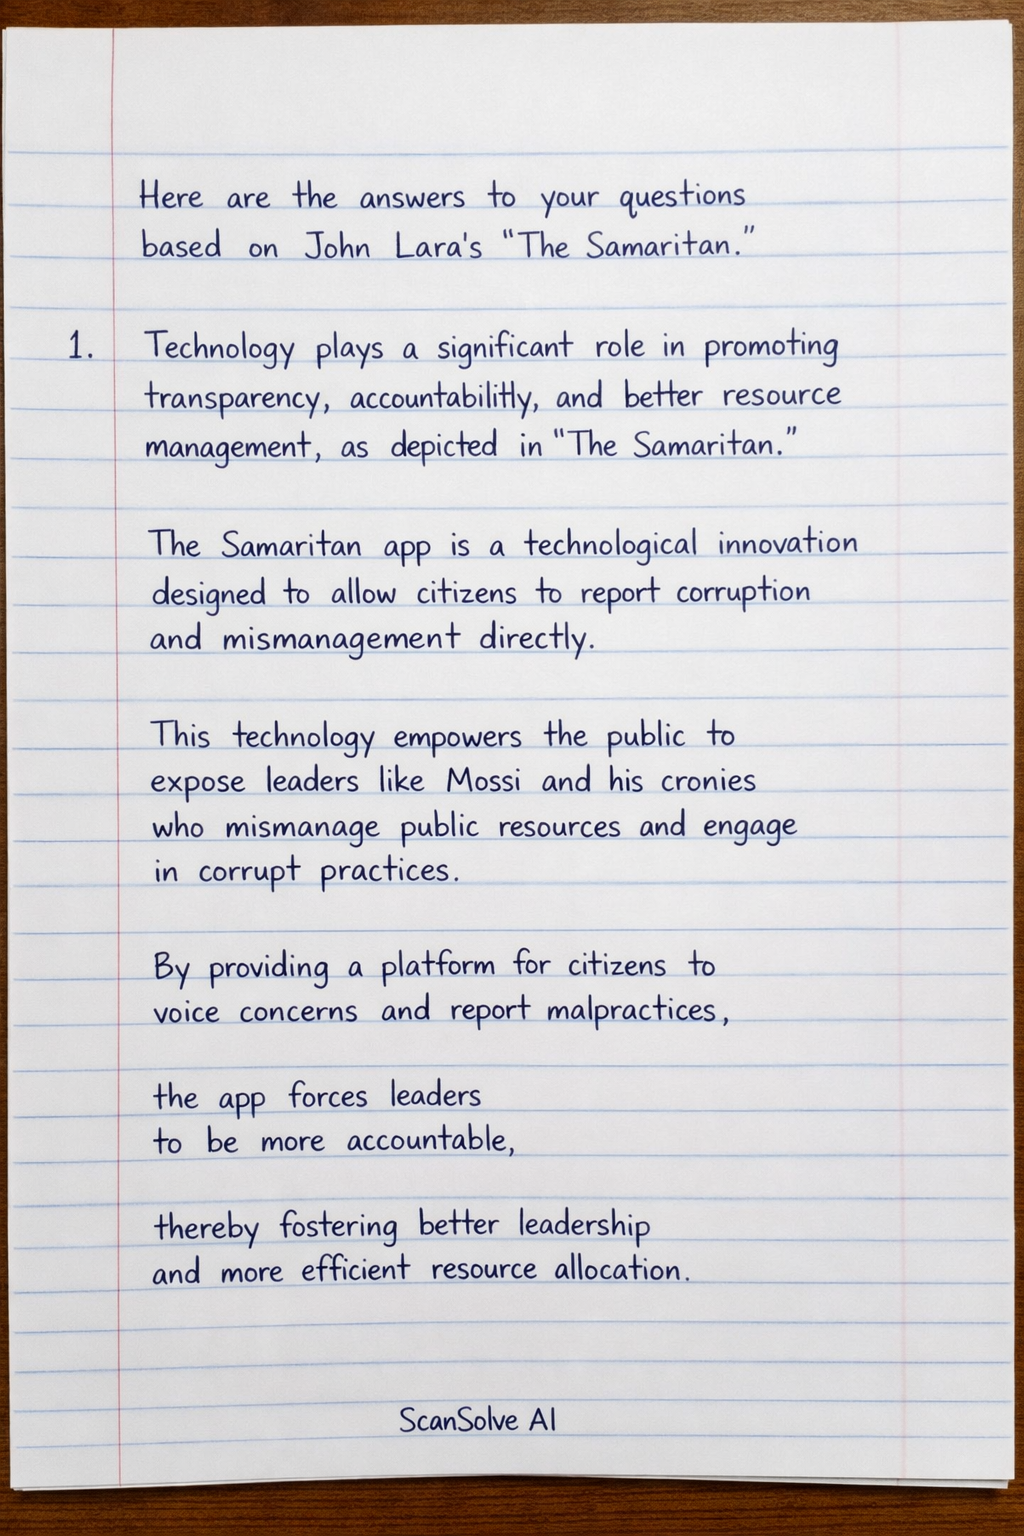 Here are the answers to your questions
based on John Lara's "The Samaritan."
1. Technology plays a significant role in promoting
transparency, accountabilitly, and better resource
management, as depicted in "The Samaritan."
The Samaritan app is a technological innovation
designed to allow citizens to report corruption
and mismanagement directly.
This technology empowers the public to
expose leaders like Mossi and his cronies
who mismanage public resources and engage
in corrupt practices.
By providing a platform for citizens to
voice concerns and report malpractices,
the app forces leaders
to be more accountable,
thereby fostering better leadership
and more efficient resource allocation.
ScanSolve AI